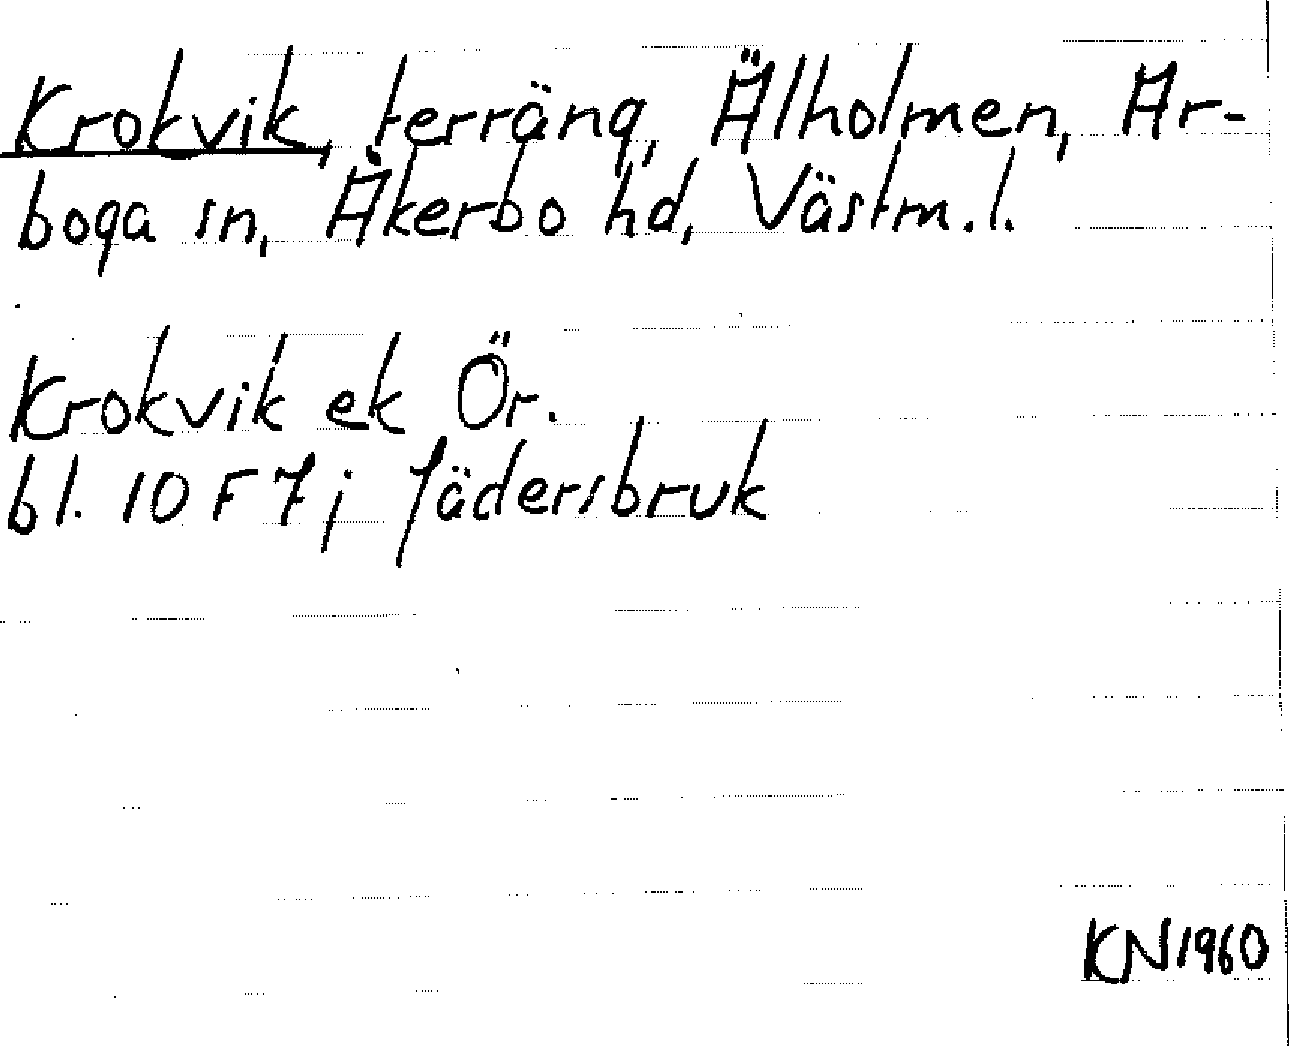 Krokvik, terräng, Älholmen, Ar-
boga sn, Åkerbo hd, Västm. l.
Krokvik ek Ör.
bl. 10 F 7 j Jädersbruk
KN 1960